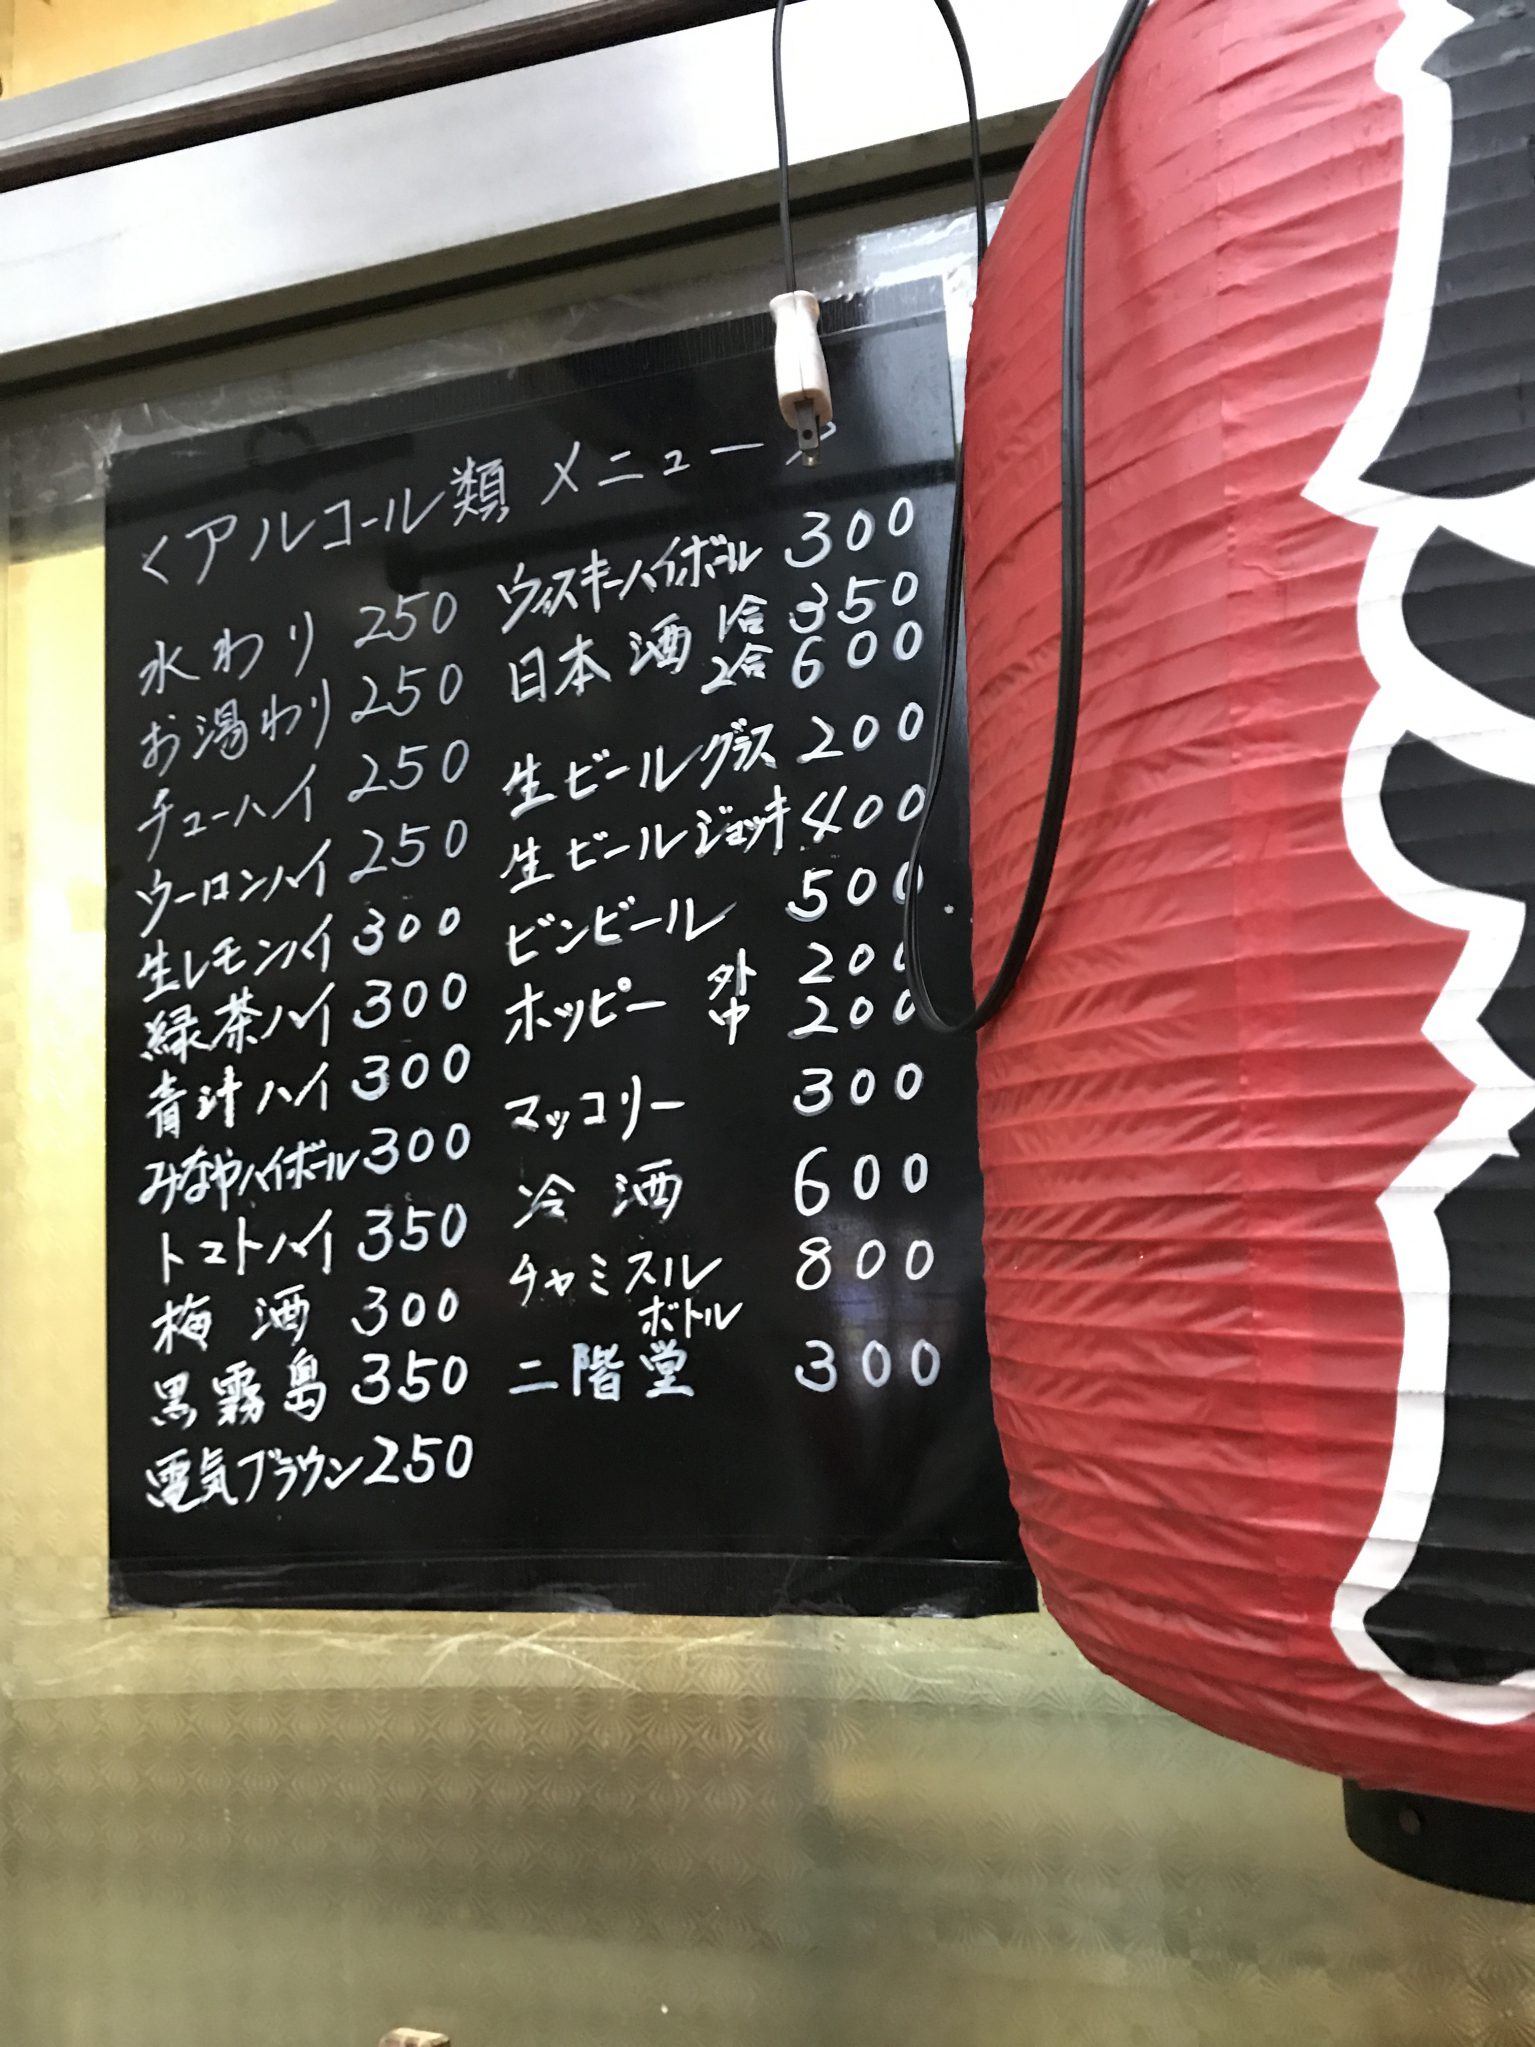 <アルコール類 メニュー>
水わり 250
お湯わり 250
チューハイ 250
ウーロンハイ 250
生レモンハイ 300
緑茶ハイ 300
青汁ハイ 300
みなやハイボール 300
トマトハイ 350
梅酒 300
黒霧島 350
電気ブラウン 250
ウィスキーハイボール 300
日本酒 1合 350
2合 600
生ビールグラス 200
生ビールジョッキ 400
ビンビール 500
ホッピー 外 200
中 200
マッコリー 300
冷酒 600
チャミスル 800
ボトル
二階堂 300